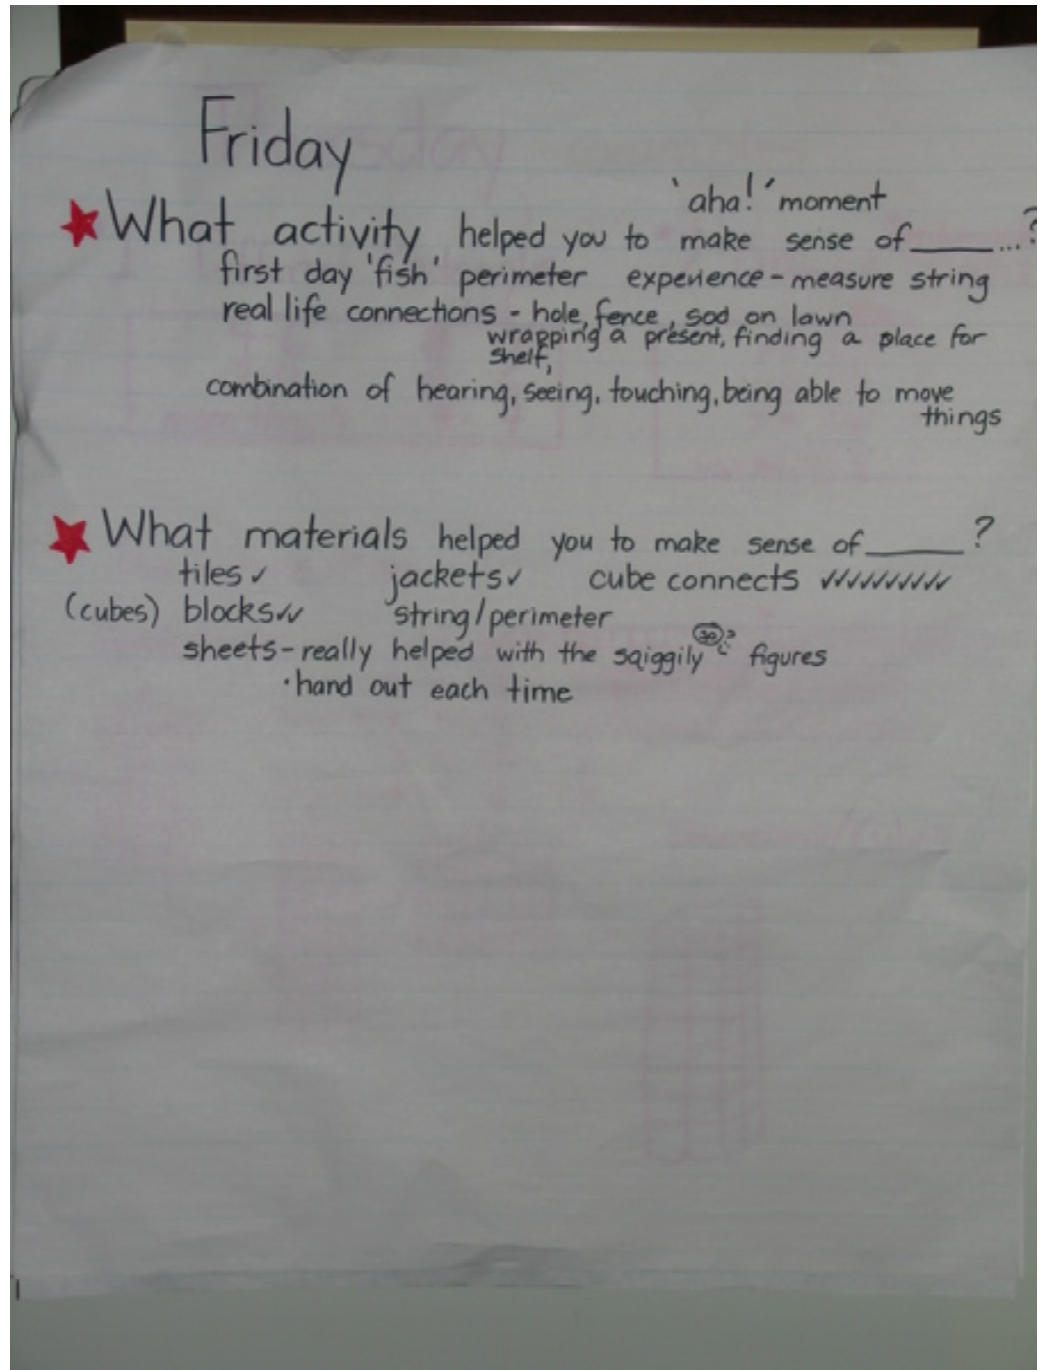 Friday
'aha!' moment
What activity helped you to make sense of_____...?
first day 'fish' perimeter experience - measure string
real life connections - hole, fence, sod on lawn
wrapping a present, finding a place for
shelf,
combination of hearing, seeing, touching, being able to move
things
What materials helped you to make sense of_____?
tiles ✓ jackets ✓ cube connects ✓✓✓✓✓✓✓✓✓
(cubes) blocks ✓✓ string/perimeter
sheets - really helped with the sqiggily figures
• hand out each time